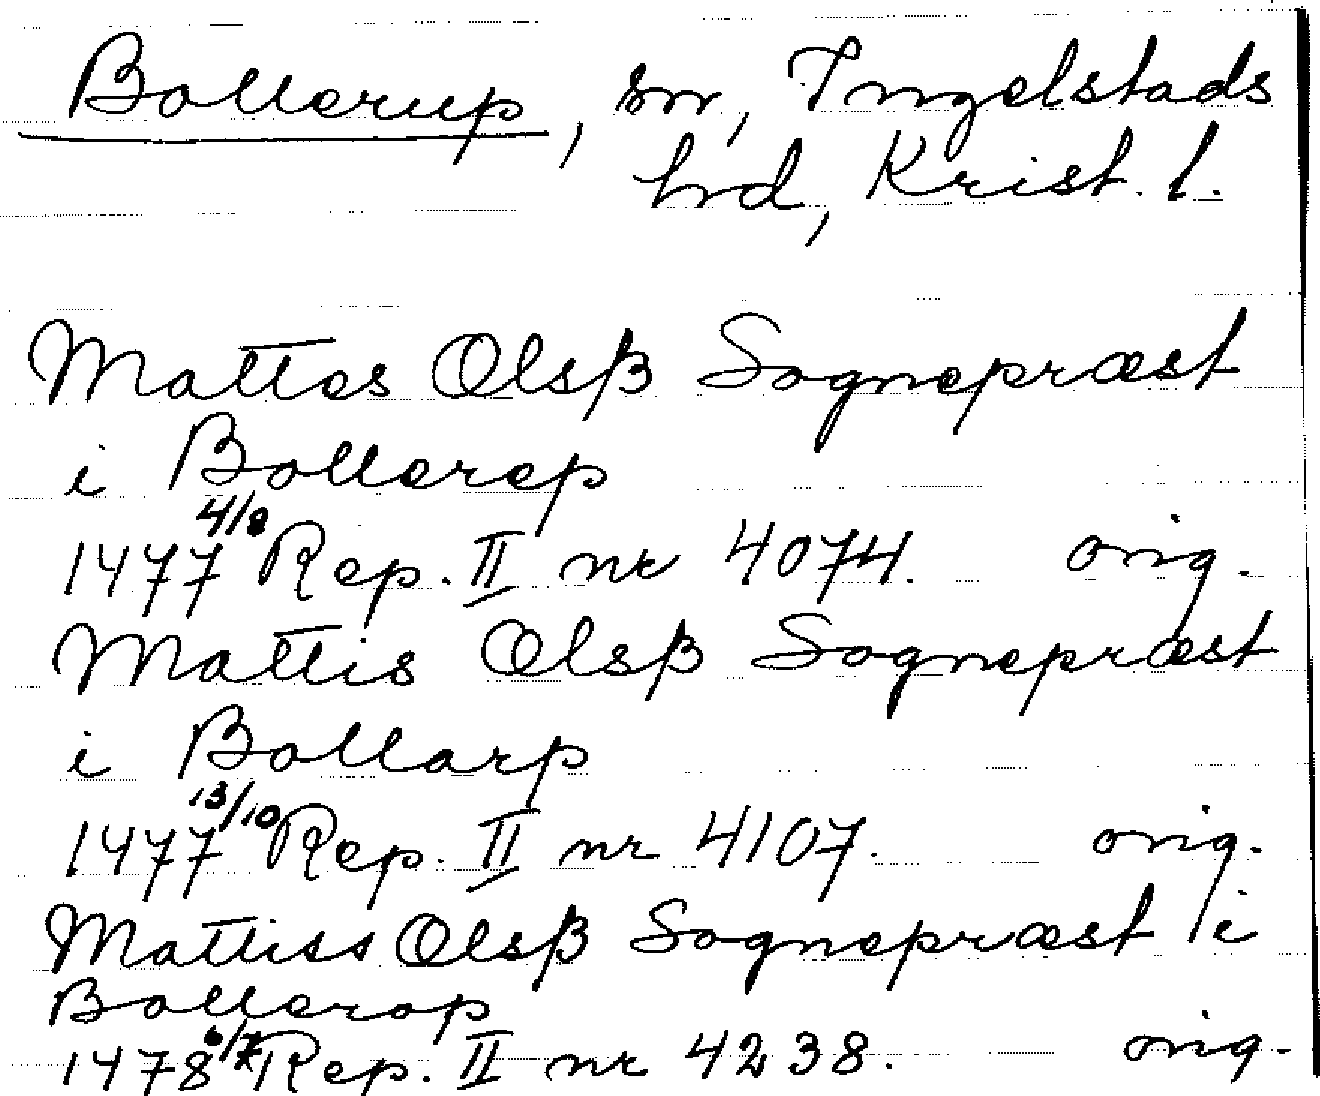 Bollerup, sn, Ingelstads
hrd, Krist. l.
Mattes Olsß Sognepræst
i Bollerep
1477 4/8 Rep. II nr 4074. orig.
Mattis Olsß Sognepræst
i Bollarp
1477 13/10 Rep. II nr 4107. orig.
Mattiss Olsß Sognepræst i
Bollerop
1478 6/7 Rep. II nr 4238. orig.